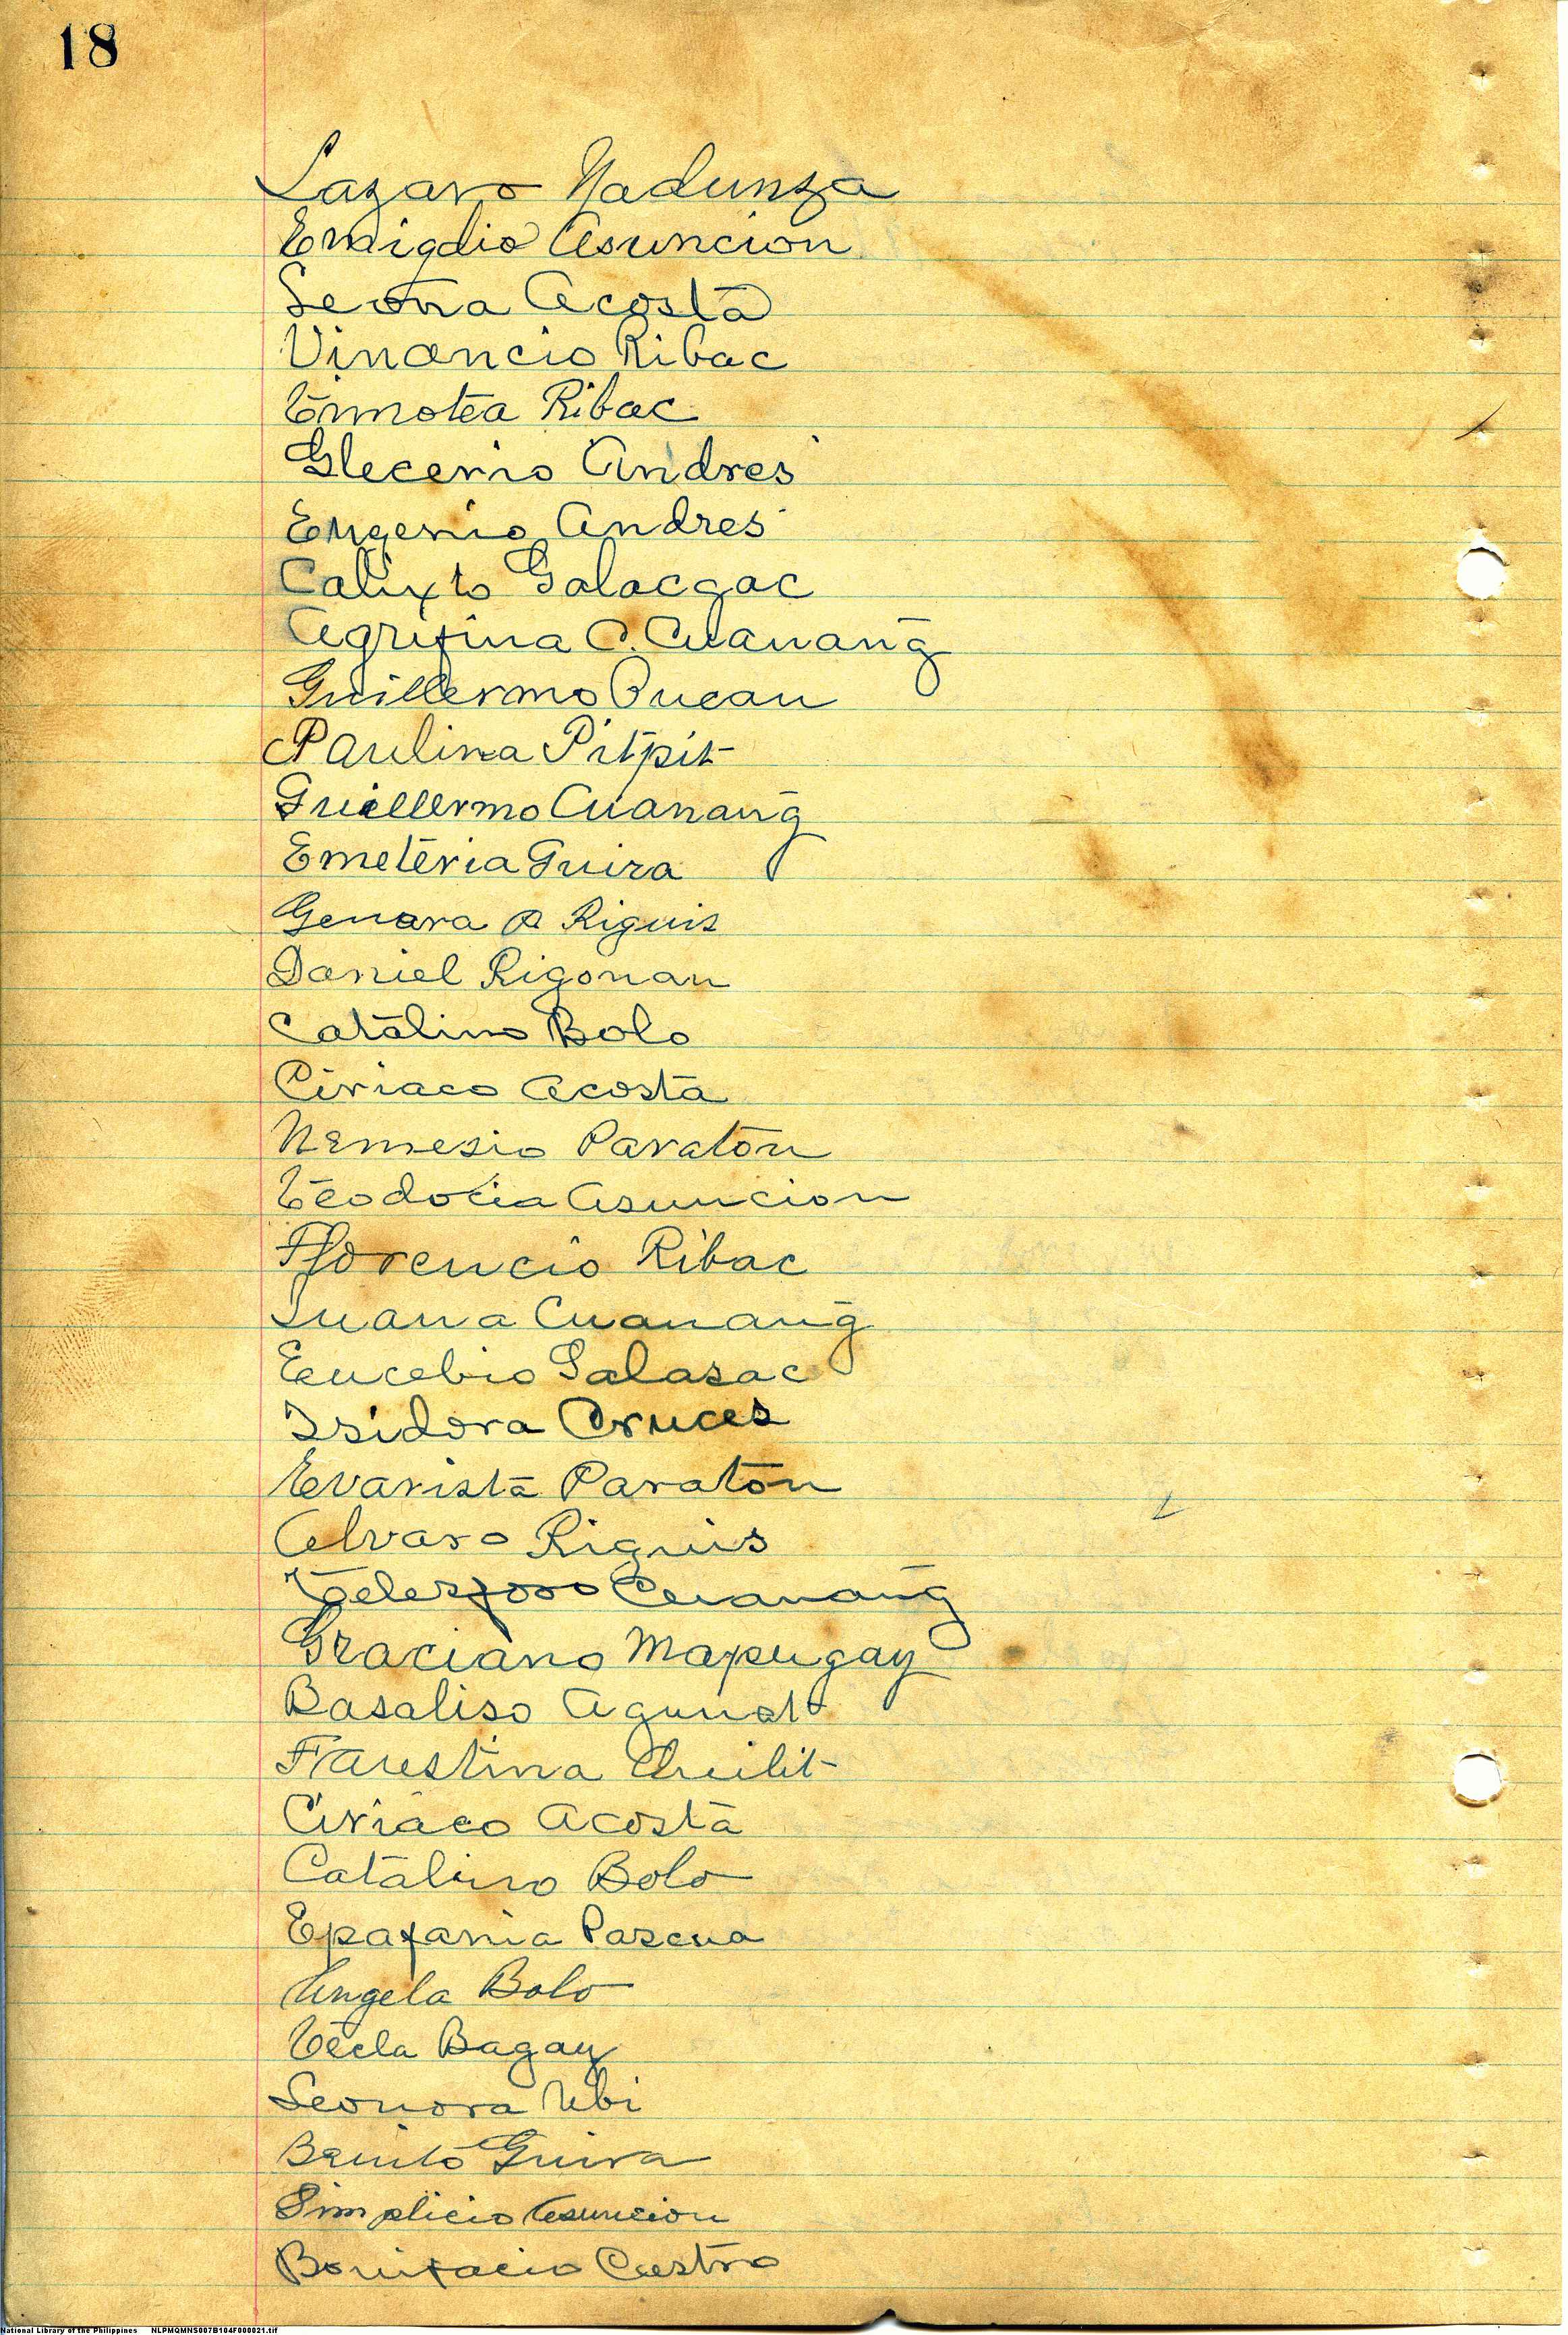 18
Lazaro Nadunza
Emigdio Asuncion
Leona Acosta
Vinancio Ribac
Timotea Ribac
Glecerio Andres
Eugenio Andres
Calixto Galacgac
Agrifina C. Cuanang
Guillermo Pucan
Paulina Pitpit
Guillermo Cuanang
Emeteria Guira
Genara R Riguis
Daniel Rigonan
Catalino Bolo
Ciriaco Acosta
Nemesio Paraton
Teodocia Asuncion
Florencio Ribac
Juana Cuanang
Eucebio Salasac
Isidora Cruces
Evarista Paraton
Alvaro Riguis
Telesforo Cuanang
Graciano Mapugay
Basaliso Agunat
Faustina Quilit
Ciriaco Acosta
Catalino Bolo
Epafania Pascua
Angela Bolo
Tecla Bagay
Leonora Ubi
Benito Guira
Simplicio Asuncion
Bonifacio Castro
National Library of the Philippines NLPMQMNS007B104F000021.tif